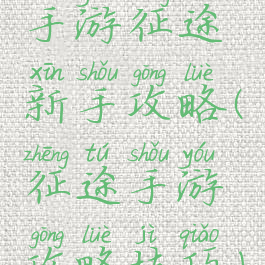 手游征途
xīn shǒu gōng lüè
新手攻略(
zhēng tú shǒu yóu
征途手游
gōng lüè jì qiǎo
攻略技巧)